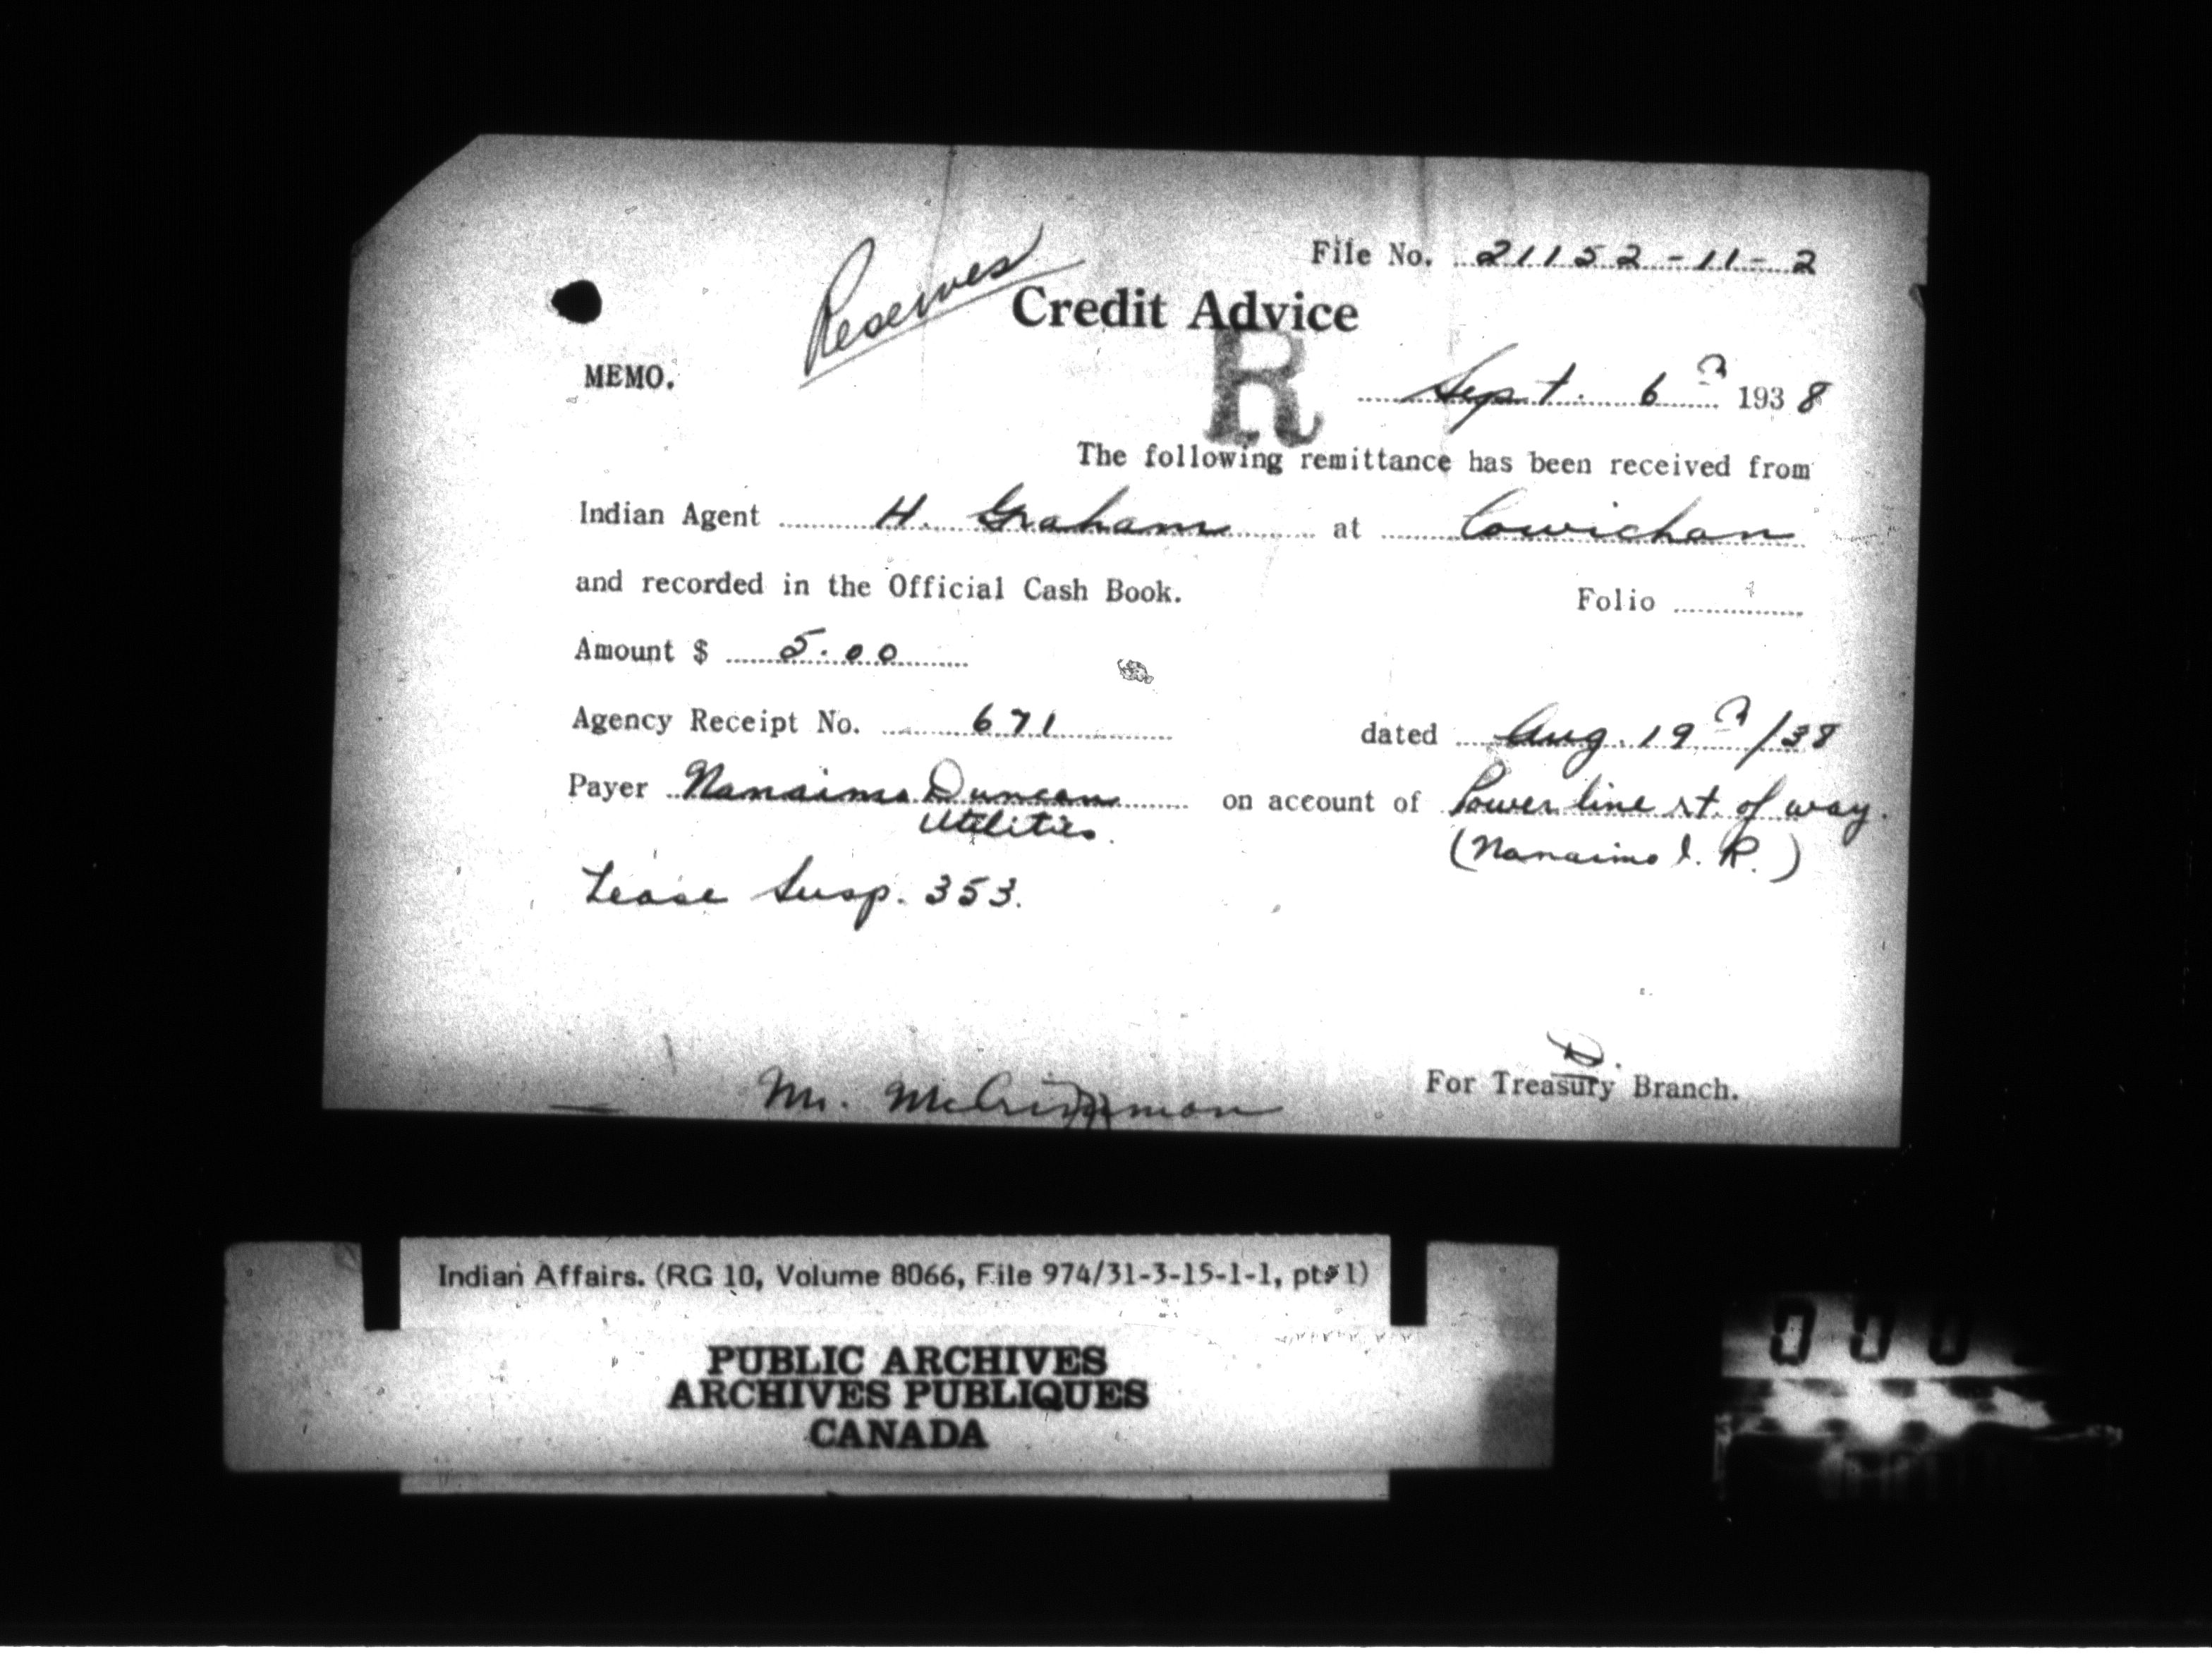 File No. 21152-11-2
Reserves
Credit Advice
R
MEMO.
Sept. 6th 1938
The following remittance has been received from
Indian Agent H. Graham at Cowichan
and recorded in the Official Cash Book. Folio
Amount $ 5.00
Agency Receipt No. 671 dated Aug. 19th/38
Payer Nanaimo Duncan on account of Power line rt. of way.
Utilities. (Nanaimo I. R.)
Lease Susp. 353.
For Treasury Branch.
Mr.
Indian Affairs. (RG 10, Volume 8066, File 974/31-3-15-1-1, pt. 1)
PUBLIC ARCHIVES
ARCHIVES PUBLIQUES
CANADA